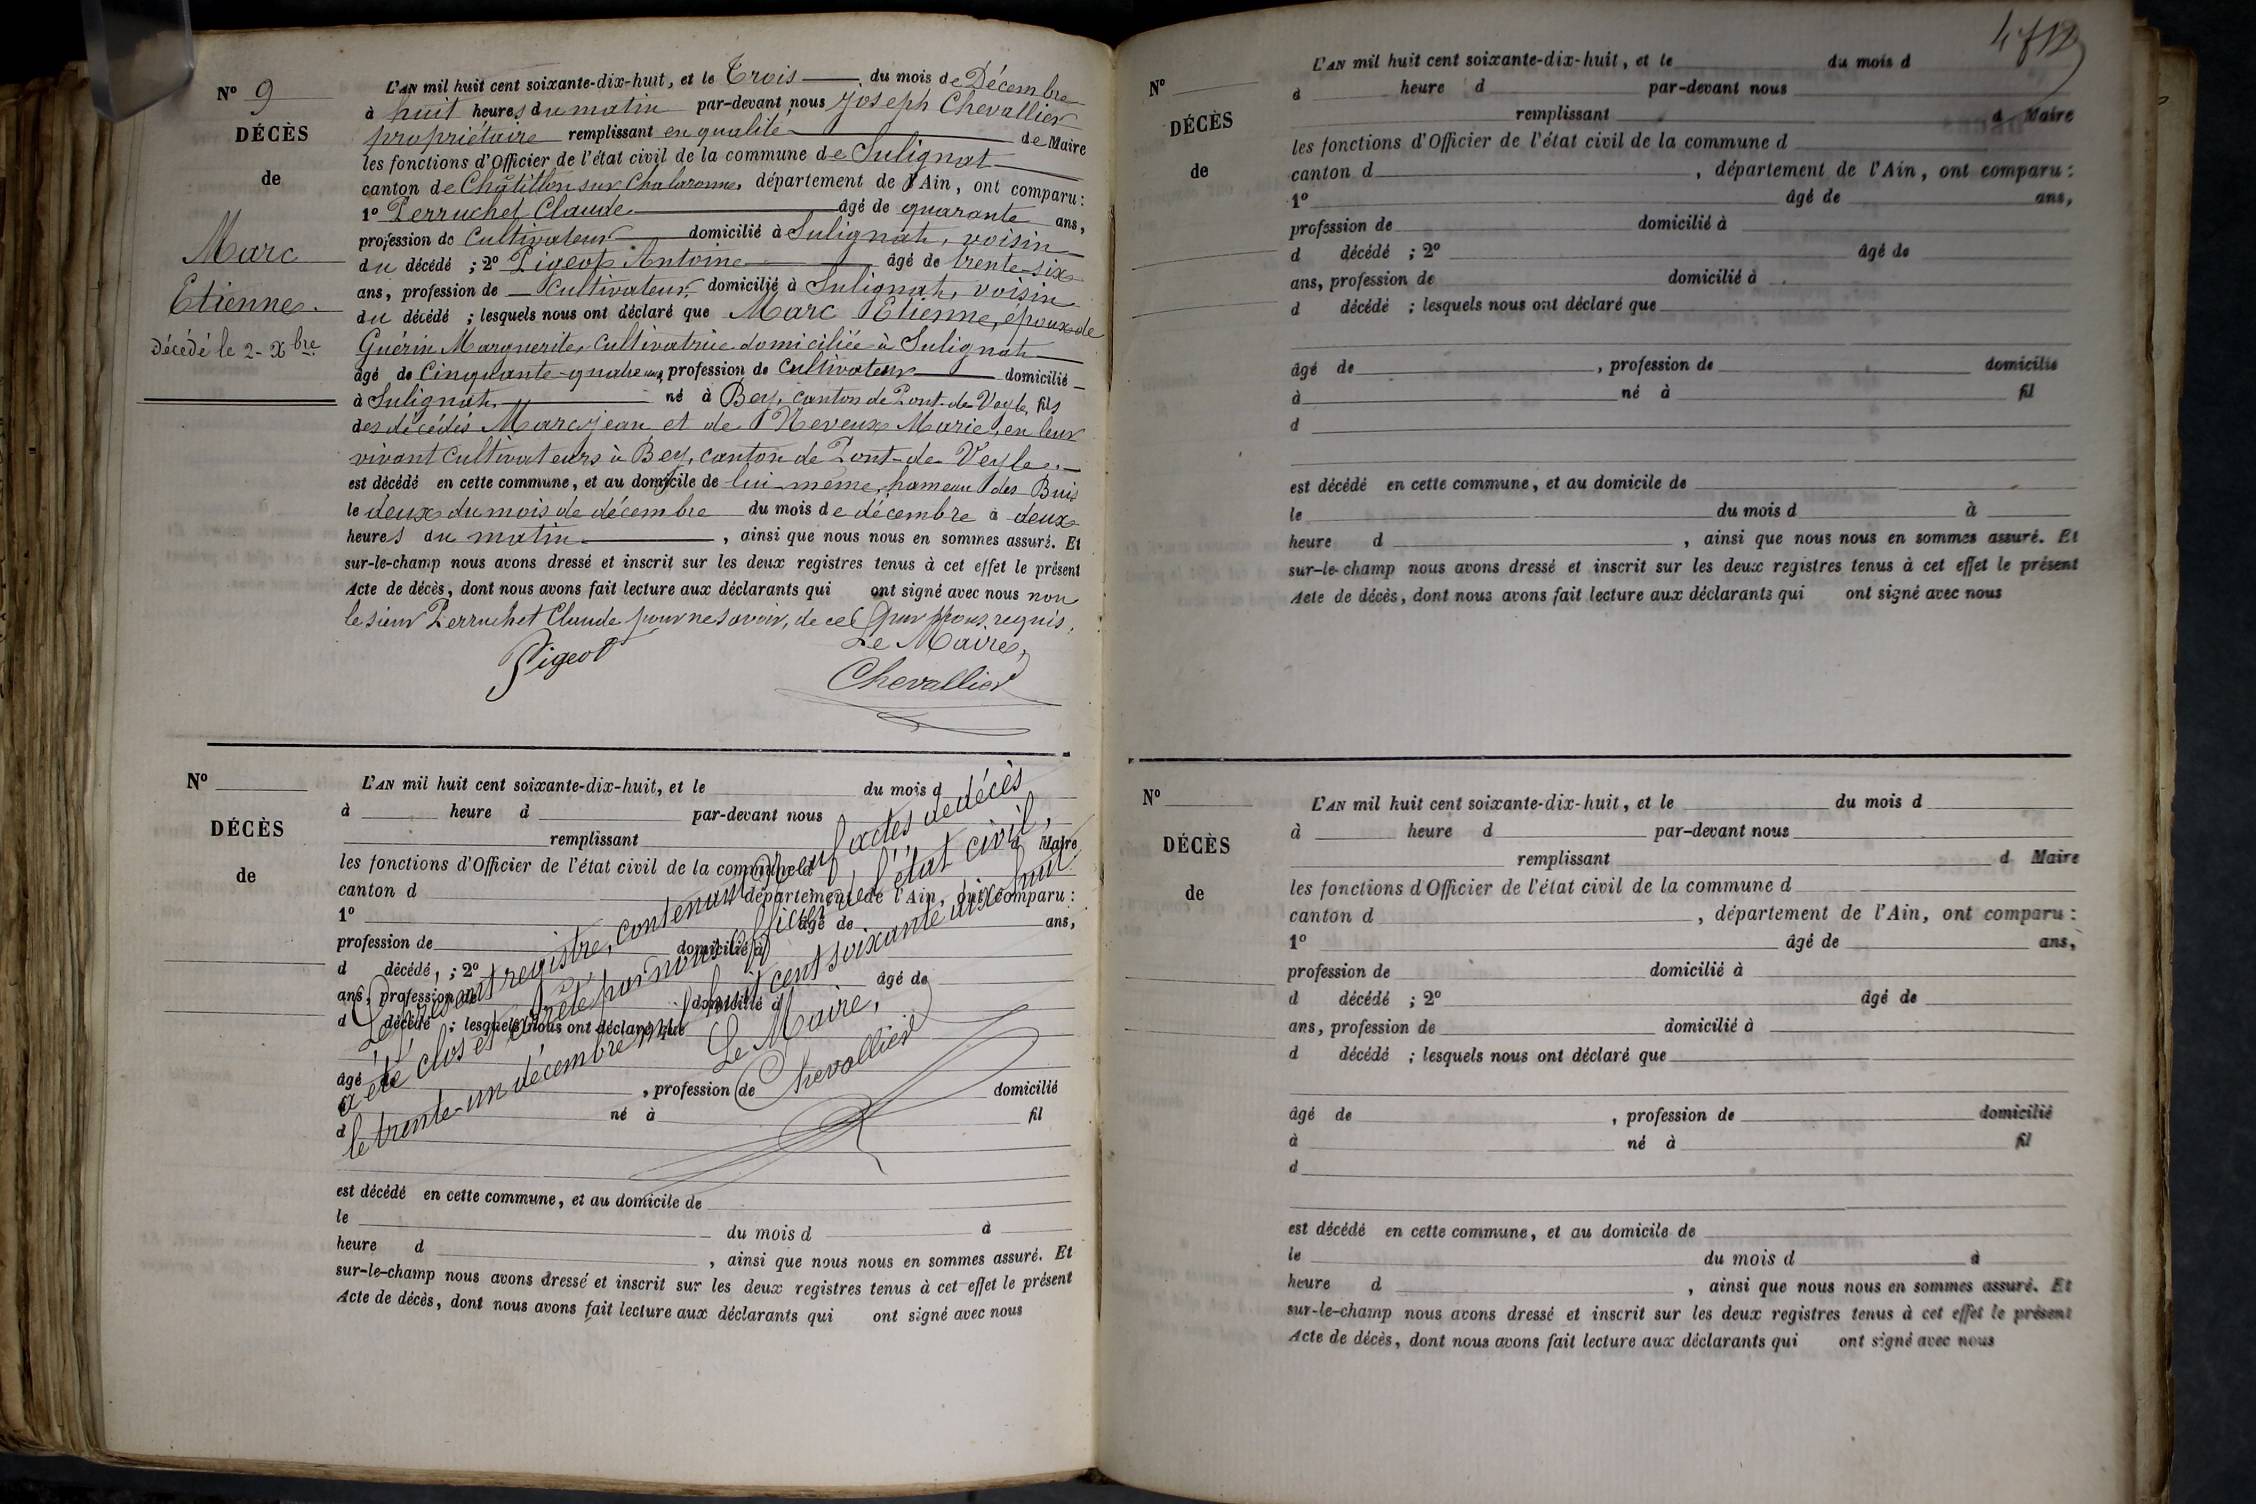 N° 9
DÉCÈS
de
Marc
Etienne.
Décédé le 2 - Xbre
L'AN mil huit cent soixante-dix-huit, et le Trois du mois de Décembre
à huit heures du matin par-devant nous Joseph Chevallier
propriétaire remplissant en qualité de Maire
les fonctions d'Officier de l'état civil de la commune de Sulignat
canton de Châtillon sur Chalaronne, département de l'Ain, ont comparu :
1° Perruchet Claude âgé de quarante ans,
profession de Cultivateur domicilié à Sulignat, voisin
du décédé ; 2° Pigeot Antoine âgé de trente-six
ans, profession de Cultivateur domicilié à Sulignat, voisin
du décédé ; lesquels nous ont déclaré que Marc Etienne, époux de
Guérin Marguerite, cultivatrice domiciliée à Sulignat
âgé de Cinquante-quatre ans, profession de Cultivateur domicilié
à Sulignat, né à Bey, canton de Pont-de-Veyle, fils
des décédés Marc Jean et de Neveux Marie, en leur
vivant cultivateurs à Bey, canton de Pont-de-Veyle.
est décédé en cette commune, et au domicile de lui-même, hameau des Buis
le deux du mois de décembre du mois de décembre à deux
heures du matin, ainsi que nous nous en sommes assuré. Et
sur-le-champ nous avons dressé et inscrit sur les deux registres tenus à cet effet le présent
Acte de décès, dont nous avons fait lecture aux déclarants qui ont signé avec nous non
le sieur Perruchet Claude pour ne savoir, de ce par nous requis.
Le Maire,
Pigeot
Chevallier
N°
DÉCÈS
de
L'AN mil huit cent soixante-dix-huit, et le du mois d
à heure d par-devant nous
remplissant d Maire
les fonctions d'Officier de l'état civil de la commune d
canton d département de l'Ain, ont comparu :
1° âgé de ans,
profession de domicilié à
d décédé, ; 2° âgé de
ans, profession de domicilié à
d décédé ; lesquels nous ont déclaré que
âgé de , profession de domicilié
à né à fil
d
est décédé en cette commune, et au domicile de
le du mois d à
heure d , ainsi que nous nous en sommes assuré. Et
sur-le-champ nous avons dressé et inscrit sur les deux registres tenus à cet effet le présent
Acte de décès, dont nous avons fait lecture aux déclarants qui ont signé avec nous
Le présent registre, contenant Neuf actes de décès
a été clos et arrêté par nous Officier de l'état civil,
le trente-un décembre mil huit cent soixante dix huit
Le Maire,
Chevallier
4 f 12
N°
DÉCÈS
de
L'AN mil huit cent soixante-dix-huit, et le du mois d
à heure d par-devant nous
remplissant d Maire
les fonctions d'Officier de l'état civil de la commune d
canton d , département de l'Ain, ont comparu :
1° âgé de ans,
profession de domicilié à
d décédé ; 2° âgé de
ans, profession de domicilié à
d décédé ; lesquels nous ont déclaré que
âgé de , profession de domicilié
à né à fil
d
est décédé en cette commune, et au domicile de
le du mois d à
heure d , ainsi que nous nous en sommes assuré. Et
sur-le-champ nous avons dressé et inscrit sur les deux registres tenus à cet effet le présent
Acte de décès, dont nous avons fait lecture aux déclarants qui ont signé avec nous
N°
DÉCÈS
de
L'AN mil huit cent soixante-dix-huit, et le du mois d
à heure d par-devant nous
remplissant d Maire
les fonctions d'Officier de l'état civil de la commune d
canton d , département de l'Ain, ont comparu :
1° âgé de ans,
profession de domicilié à
d décédé ; 2° âgé de
ans, profession de domicilié à
d décédé ; lesquels nous ont déclaré que
âgé de , profession de domicilié
à né à fil
d
est décédé en cette commune, et au domicile de
le du mois d à
heure d , ainsi que nous nous en sommes assuré. Et
sur-le-champ nous avons dressé et inscrit sur les deux registres tenus à cet effet le présent
Acte de décès, dont nous avons fait lecture aux déclarants qui ont signé avec nous